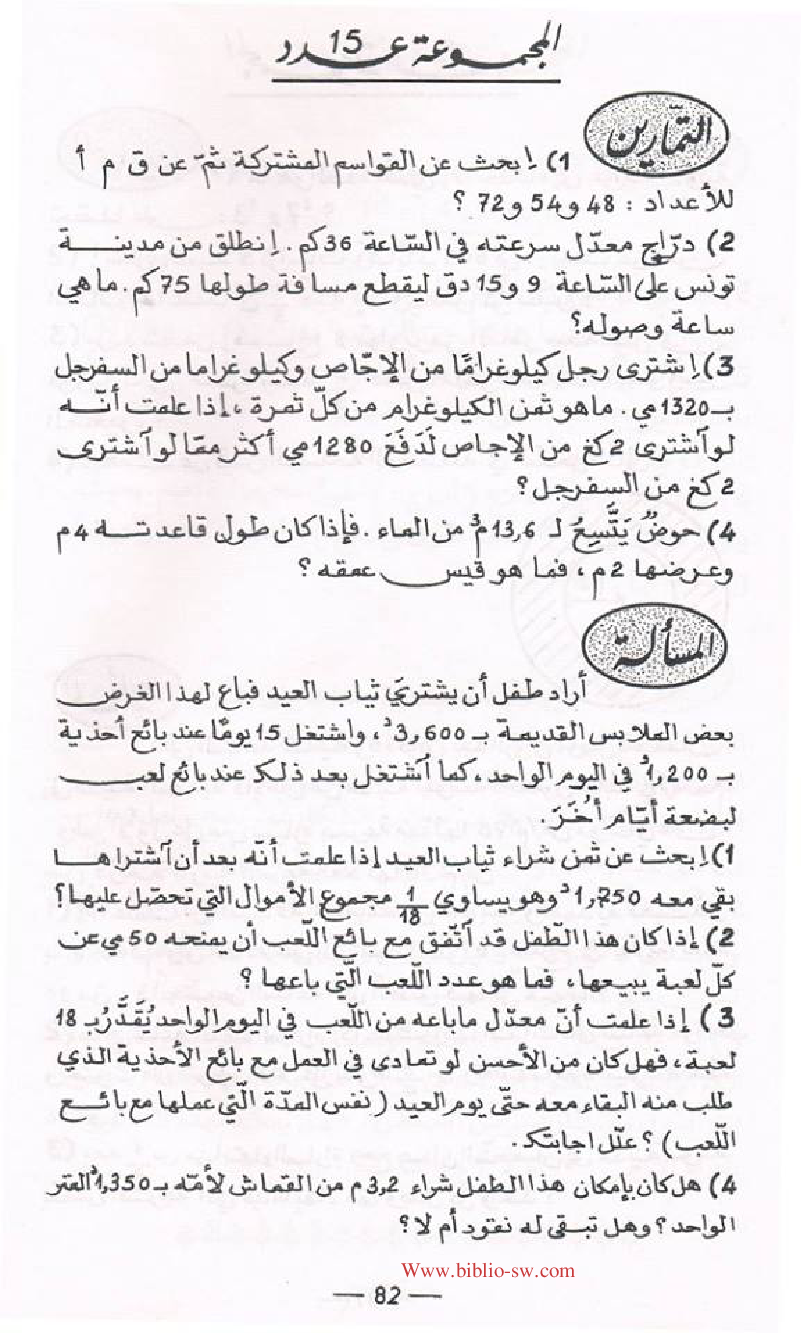 المجموعة عدد 15
التمّارين
1) إبحث عن القواسم المشتركة ثمّ عن ق م أ
للأعداد : 48 و54 و72 ؟
2) درّاج معدّل سرعته في السّاعة 36كم. إنطلق من مدينة
تونس على السّاعة 9 و15 دق ليقطع مسافة طولها 75 كم. ماهي
ساعة وصوله؟
3) إشترى رجل كيلوغرامًا من الإجّاص وكيلوغراما من السفرجل
بـ1320مي. ماهو ثمن الكيلوغرام من كلّ ثمرة، إذا علمت أنّه
لو آشترى 2 كغ من الإجاص لَدَفَعَ 1280مي أكثر ممّا لو آشترى
2 كغ من السفرجل؟
4) حوضٌ يَتَّسِعُ لـ 13,6م³ من الماء. فإذا كان طول قاعدتــه 4م
وعرضها 2م، فما هو قيس عمقه؟
المسألة
أراد طفل أن يشتري ثياب العيد فباع لهذا الغرض
بعض الملابس القديمة بـ 3,600د، واشتغل 15 يومًا عند بائع أحذية
بـ 1,200د في اليوم الواحد، كما آشتغل بعد ذلك عند بائع لعب
لبضعة أيّام أُخَرَ.
1) إبحث عن ثمن شراء ثياب العيد إذا علمت أنّه بعد أن آشتراها
بقي معه 1,750د وهو يساوي 1/18 مجموع الأموال التي تحصّل عليها؟
2) إذا كان هذا الطّفل قد آتّفق مع بائع اللّعب أن يمنحه 50 مي عن
كلّ لعبة يبيعها، فما هو عدد اللّعب الّتي باعها؟
3) إذا علمت أنّ معدّل ماباعه من اللّعب في اليوم الواحد يُقَدَّرُ بـ 18
لعبة، فهل كان من الأحسن لو تمادى في العمل مع بائع الأحذية الذي
طلب منه البقاء معه حتّى يوم العيد (نفس المدّة الّتي عملها مع بائع
اللّعب)؟ علّل اجابتك.
4) هل كان بإمكان هذا الطفل شراء 3,2 م من القماش لأمّه بـ 1,350د المتر
الواحد؟ وهل تبقى له نقود أم لا؟
Www.biblio-sw.com
— 82 —